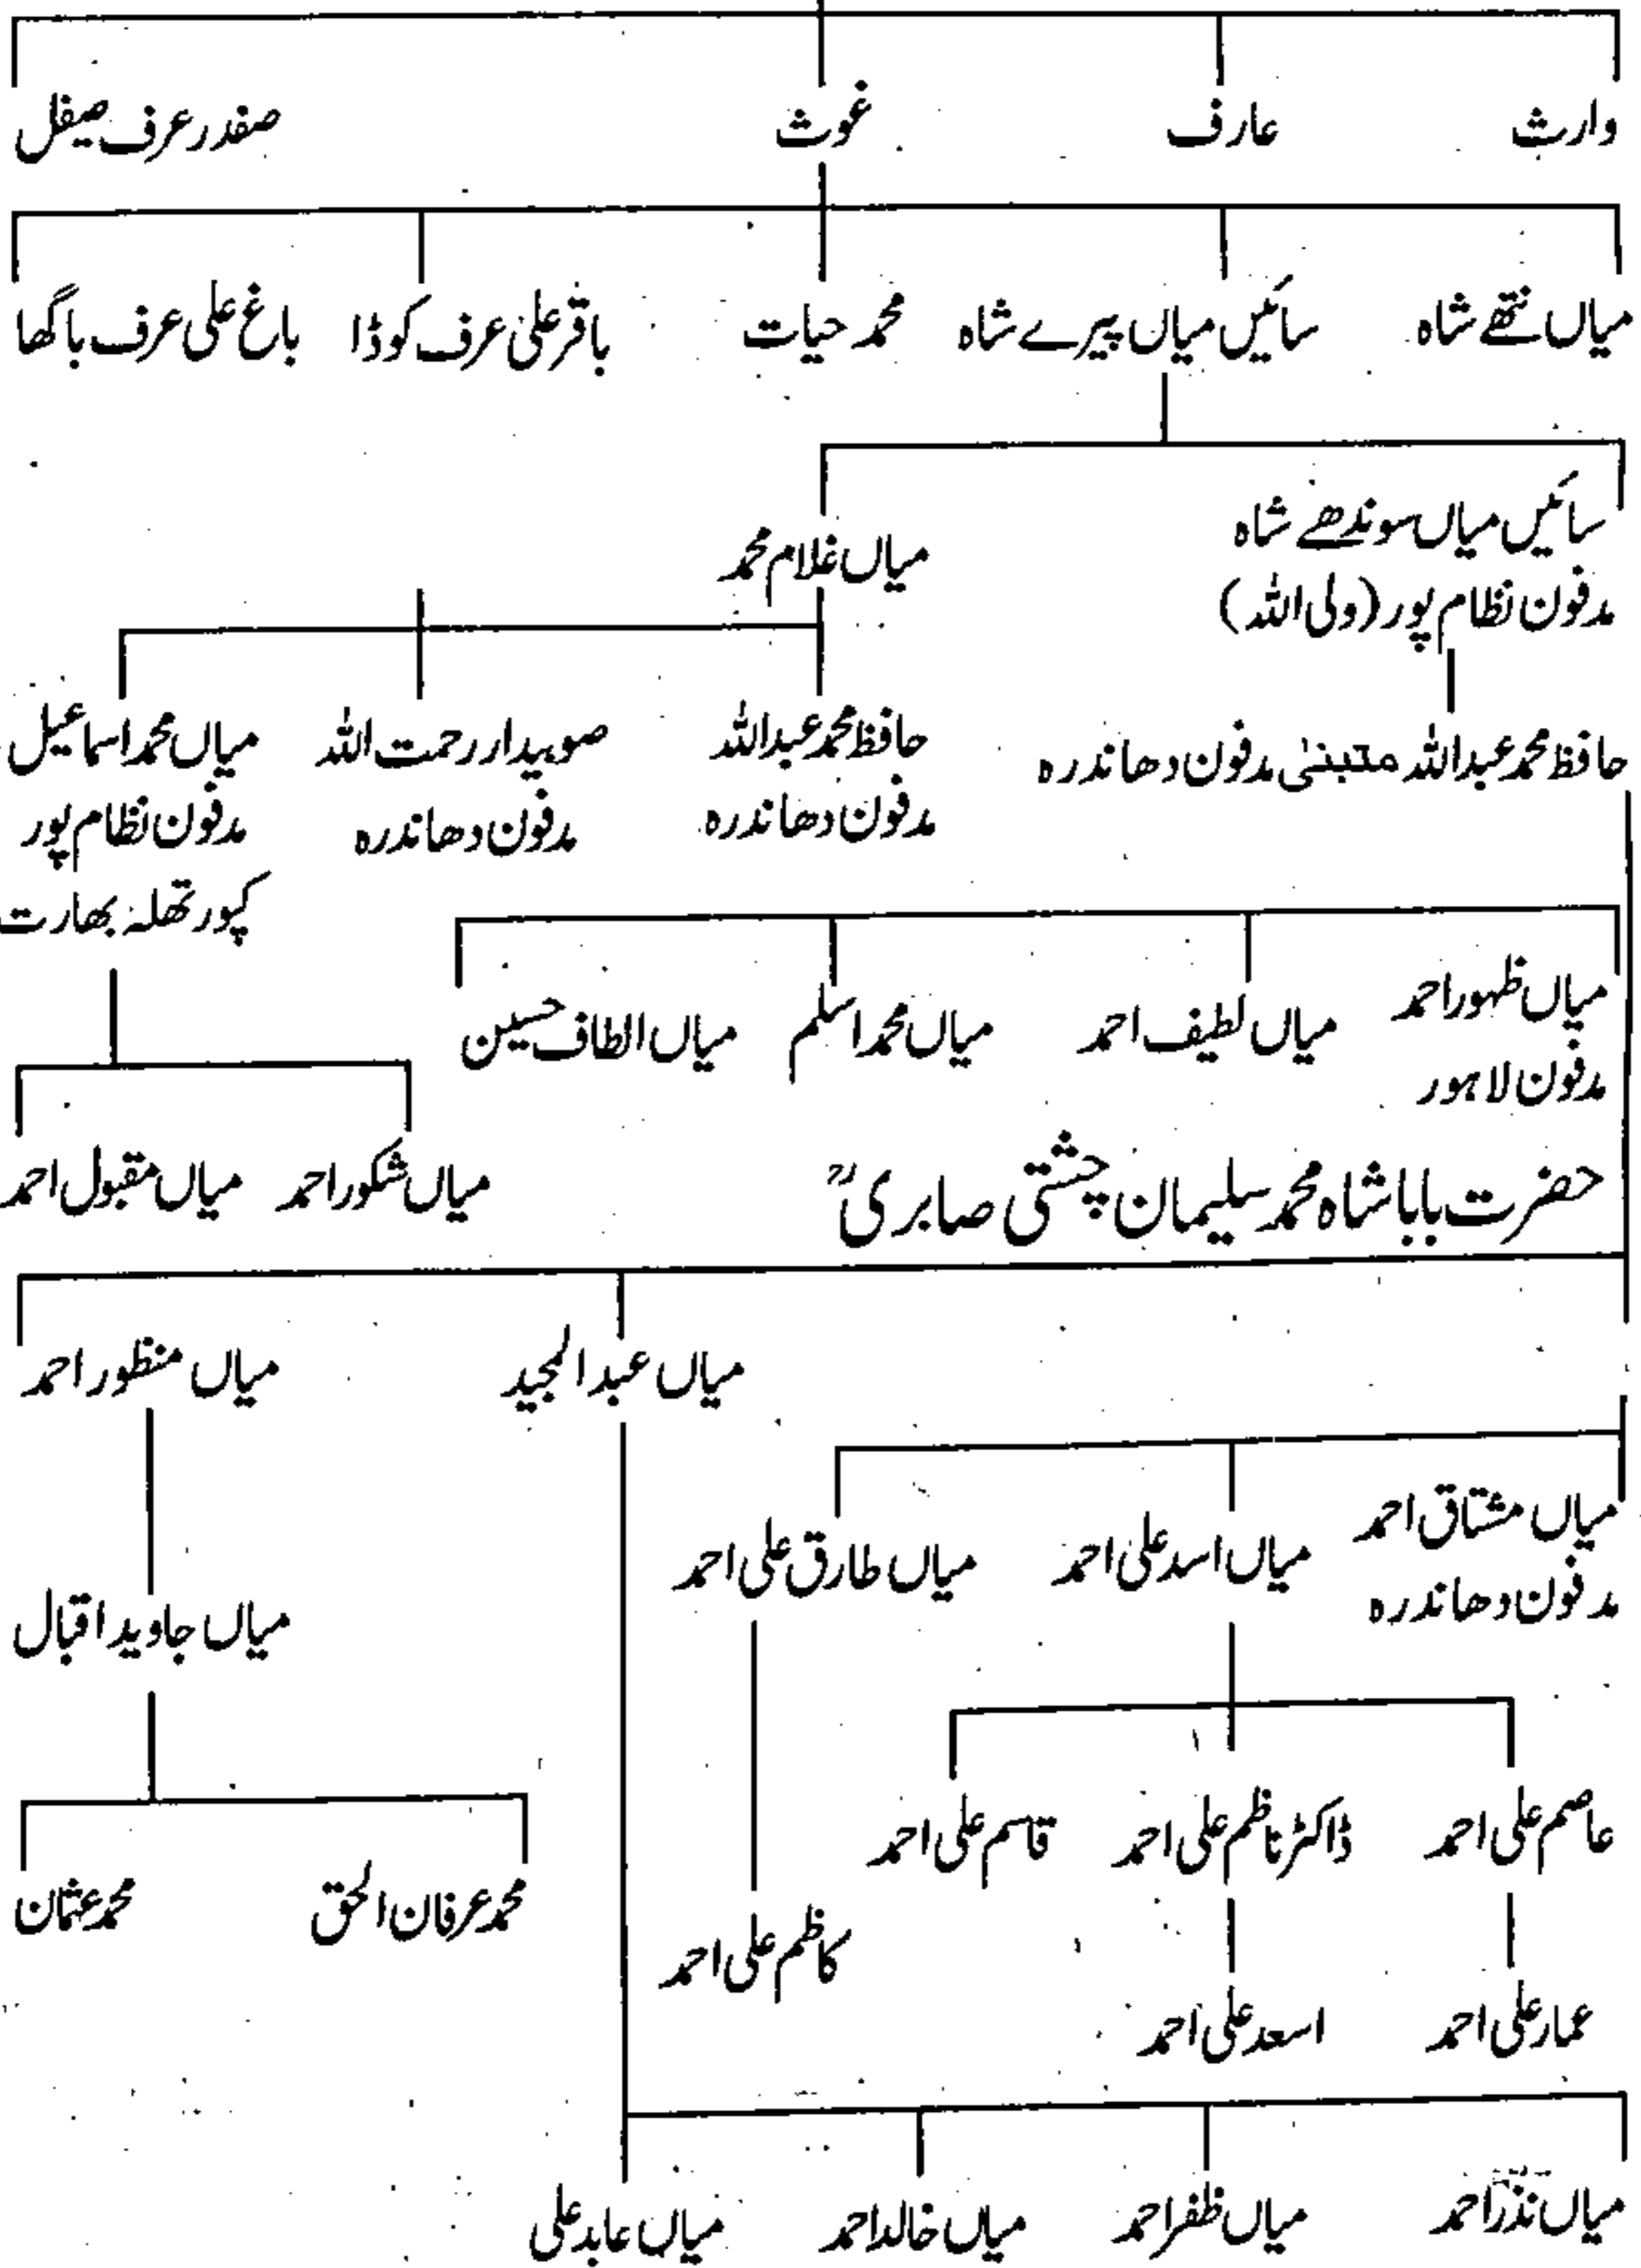 وارث
عارف
غوث
صفدر عرف صیفل
میاں نتھے شاہ
سائیں میاں پیرے شاہ
محمد حیات
باقر علی عرف کوڈا
باغ علی عرف باگھا
سائیں میاں سوندھے شاہ
مدفون نظام پور (ولی اللہ)
میاں غلام محمد
حافظ محمد عبداللہ متبنیٰ مدفون دھاندرہ
حافظ محمد عبداللہ
مدفون دھاندرہ
صوبیدار رحمت اللہ
مدفون دھاندرہ
میاں محمد اسماعیل
مدفون نظام پور
کپور تھلہ بھارت
میاں ظہور احمد
مدفون لاہور
میاں لطیف احمد
میاں محمد اسلم
میاں الطاف حسین
میاں شکور احمد
میاں مقبول احمد
حضرت بابا شاہ محمد سلیمان چشتی صابریؒ
میاں عبدالمجید
میاں منظور احمد
میاں مشتاق احمد
مدفون دھاندرہ
میاں اسد علی احمد
میاں طارق علی احمد
میاں جاوید اقبال
عاصم علی احمد
ڈاکٹر ناظم علی احمد
قاسم علی احمد
محمد عرفان الحق
محمد عثمان
کاظم علی احمد
عمار علی احمد
اسعد علی احمد
میاں نذر احمد
میاں ظفر احمد
میاں خالد احمد
میاں عابد علی